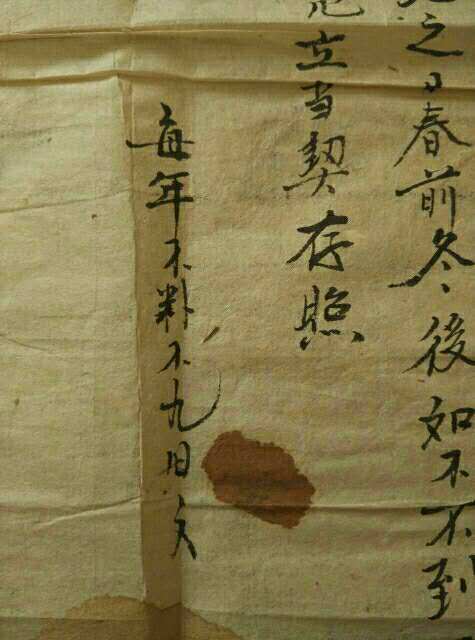 之日春前冬後如不不到
立当契存照
每年不料不九旧文